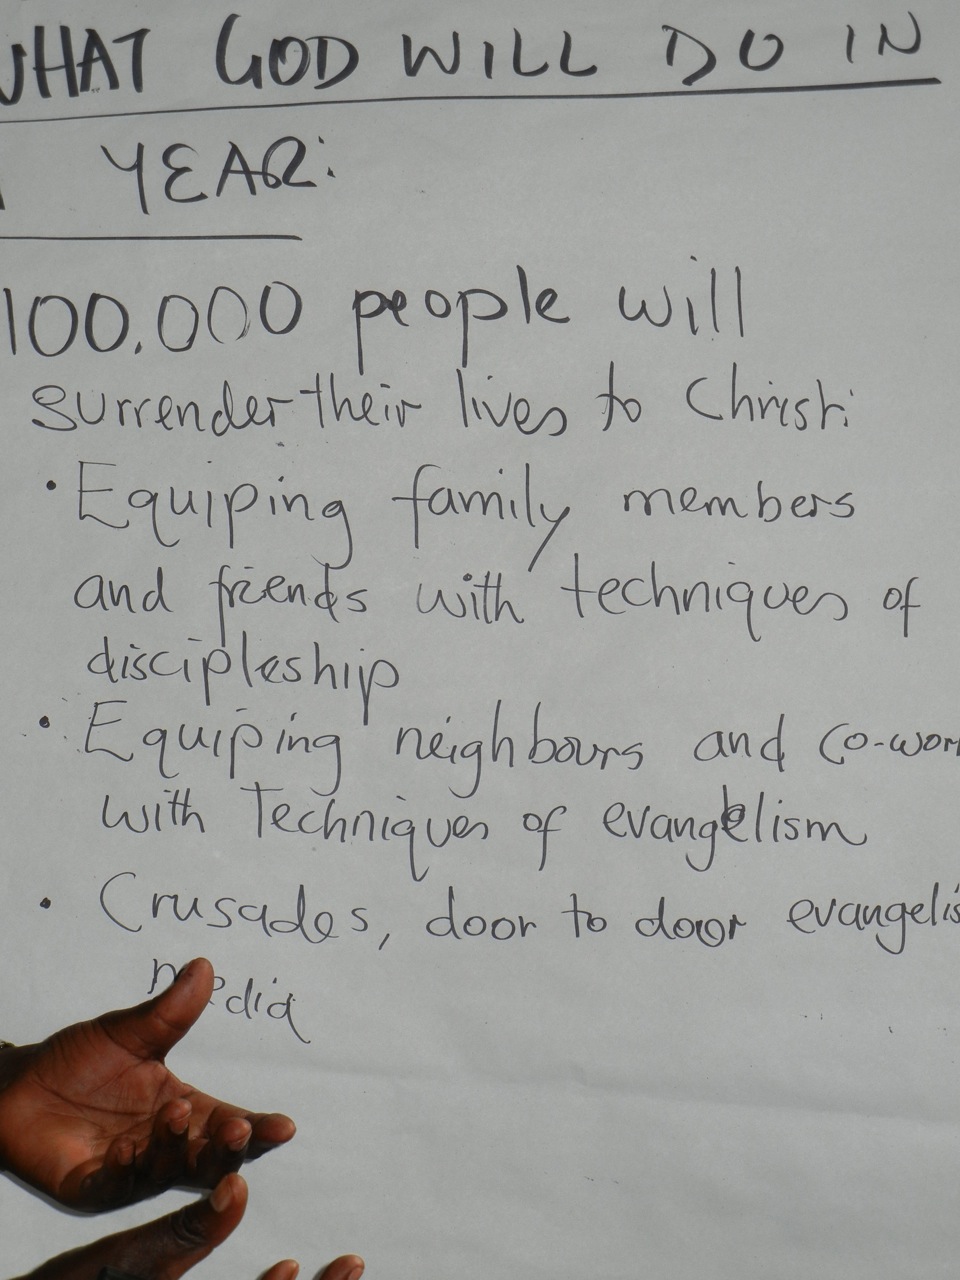 WHAT GOD WILL DO IN
YEAR:
100.000 people will
surrender their lives to Christ:
• Equiping family members
and friends with techniques of
discipleship
• Equiping neighbours and co-wor
with Techniques of evangelism
• Crusades, door to door evangelis
media